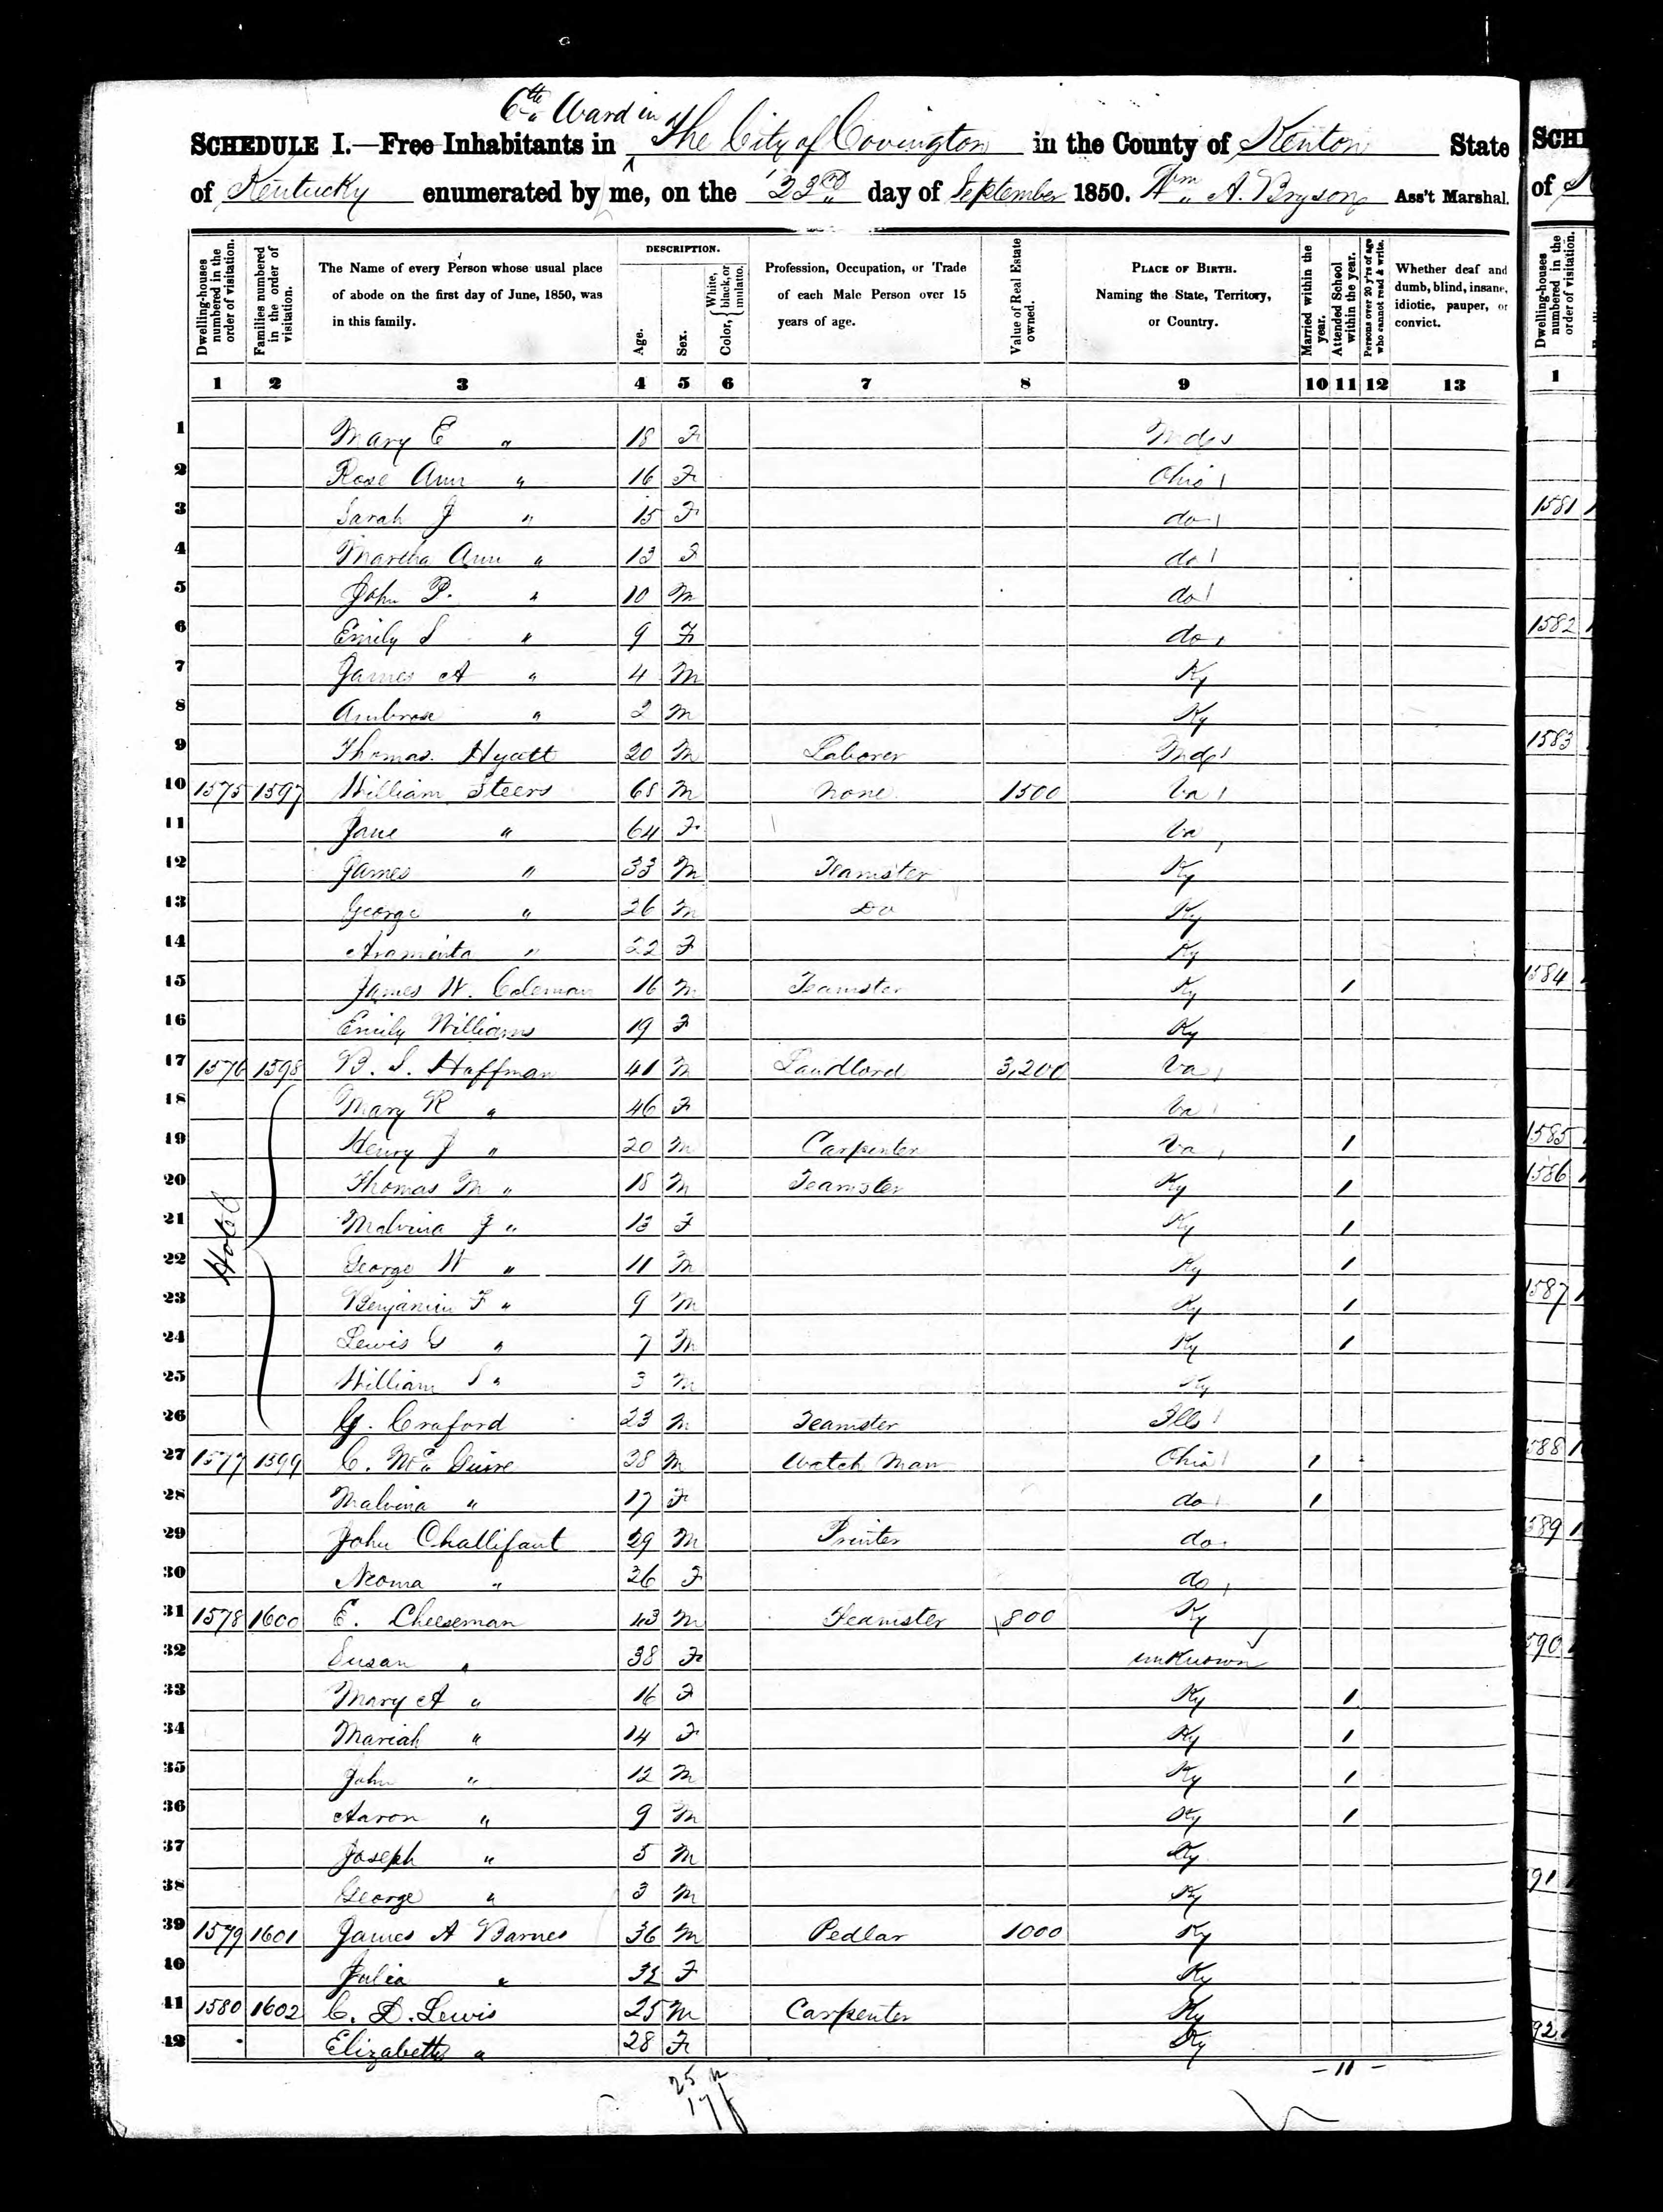 6th Ward in
SCHEDULE I.—Free Inhabitants in The City of Covington in the County of Kenton State
of Kentucky enumerated by me, on the 23rd day of September 1850. Wm A. Bryson Ass't Marshal.
Dwelling-houses numbered in the order of visitation.
Families numbered in the order of visitation.
The Name of every Person whose usual place of abode on the first day of June, 1850, was in this family.
DESCRIPTION.
Age.
Sex.
Color, { White, black, or mulatto.
Profession, Occupation, or Trade of each Male Person over 15 years of age.
Value of Real Estate owned.
PLACE OF BIRTH. Naming the State, Territory, or Country.
Married within the year.
Attended School within the year.
Persons over 20 y'rs of age who cannot read & write.
Whether deaf and dumb, blind, insane, idiotic, pauper, or convict.
1 2 3 4 5 6 7 8 9 10 11 12 13
1 Mary E " 18 F Md
2 Rose Ann " 16 F Ohio
3 Sarah J " 15 F do
4 Martha Ann " 13 F do
5 John P. " 10 M do
6 Emily S " 9 F do
7 James A " 4 M Ky
8 Ambrose " 2 M Ky
9 Thomas Hyatt 20 M Laborer Md
10 1575 1597 William Steers 68 M None 1500 Va
11 Jane " 64 F Va
12 James " 33 M Teamster Ky
13 George " 26 M Do Ky
14 Araminta " 22 F Ky
15 James W. Coleman 16 M Teamster Ky 1
16 Emily Williams 19 F Ky
17 1576 1598 B. S. Hoffman 41 M Landlord 3,200 Va
18 Mary R " 46 F Va
19 Henry J " 20 M Carpenter Va 1
20 Thomas M " 18 M Teamster Ky 1
21 Malvina J " 13 F Ky 1
Hotel
22 George W " 11 M Ky 1
23 Benjamin F " 9 M Ky 1
24 Lewis G " 7 M Ky 1
25 William S " 3 M Ky
26 G. Craford 23 M Teamster Ills
27 1577 1599 C. Mc Guire 28 M Watch Man Ohio 1
28 Malvina " 17 F do 1
29 John Challifant 29 M Printer do
30 Neoma " 26 F do
31 1578 1600 E. Cheeseman 43 M Teamster 800 Ky
32 Susan " 38 F unknown
33 Mary A " 16 F Ky 1
34 Mariah " 14 F Ky 1
35 John " 12 M Ky 1
36 Aaron " 9 M Ky 1
37 Joseph " 5 M Ky
38 George " 3 M Ky
39 1579 1601 James A Barnes 36 M Pedlar 1000 Ky
40 Julia " 32 F Ky
41 1580 1602 C. D. Lewis 25 M Carpenter Ky
42 Elizabeth " 28 F Ky
25 m
17 f
- 11 -
SCH
of
Dwelling-houses numbered in the order of visitation.
1
1581
1582
1583
1584
1585
1586
1587
588
589
590
91
92